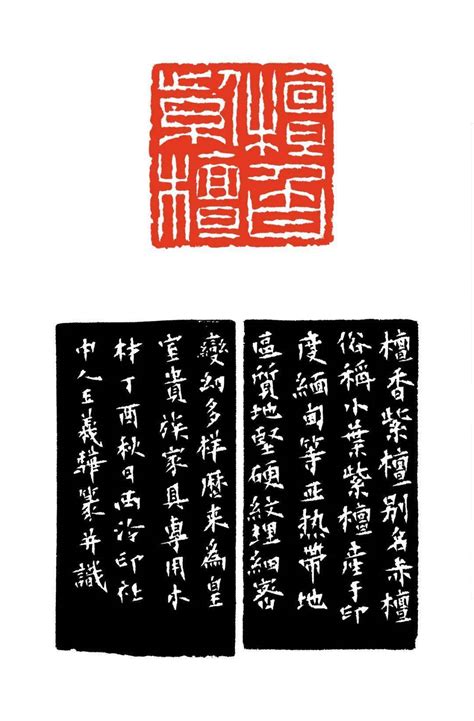 檀香紫檀
檀香紫檀别名赤檀
俗稱小葉紫檀產于印
度緬甸等亚热帶地
區質地堅硬紋理細密
變幻多样歷来為皇
室貴族家具專用木
材丁酉秋日西泠印社
中人王義驊篆并識